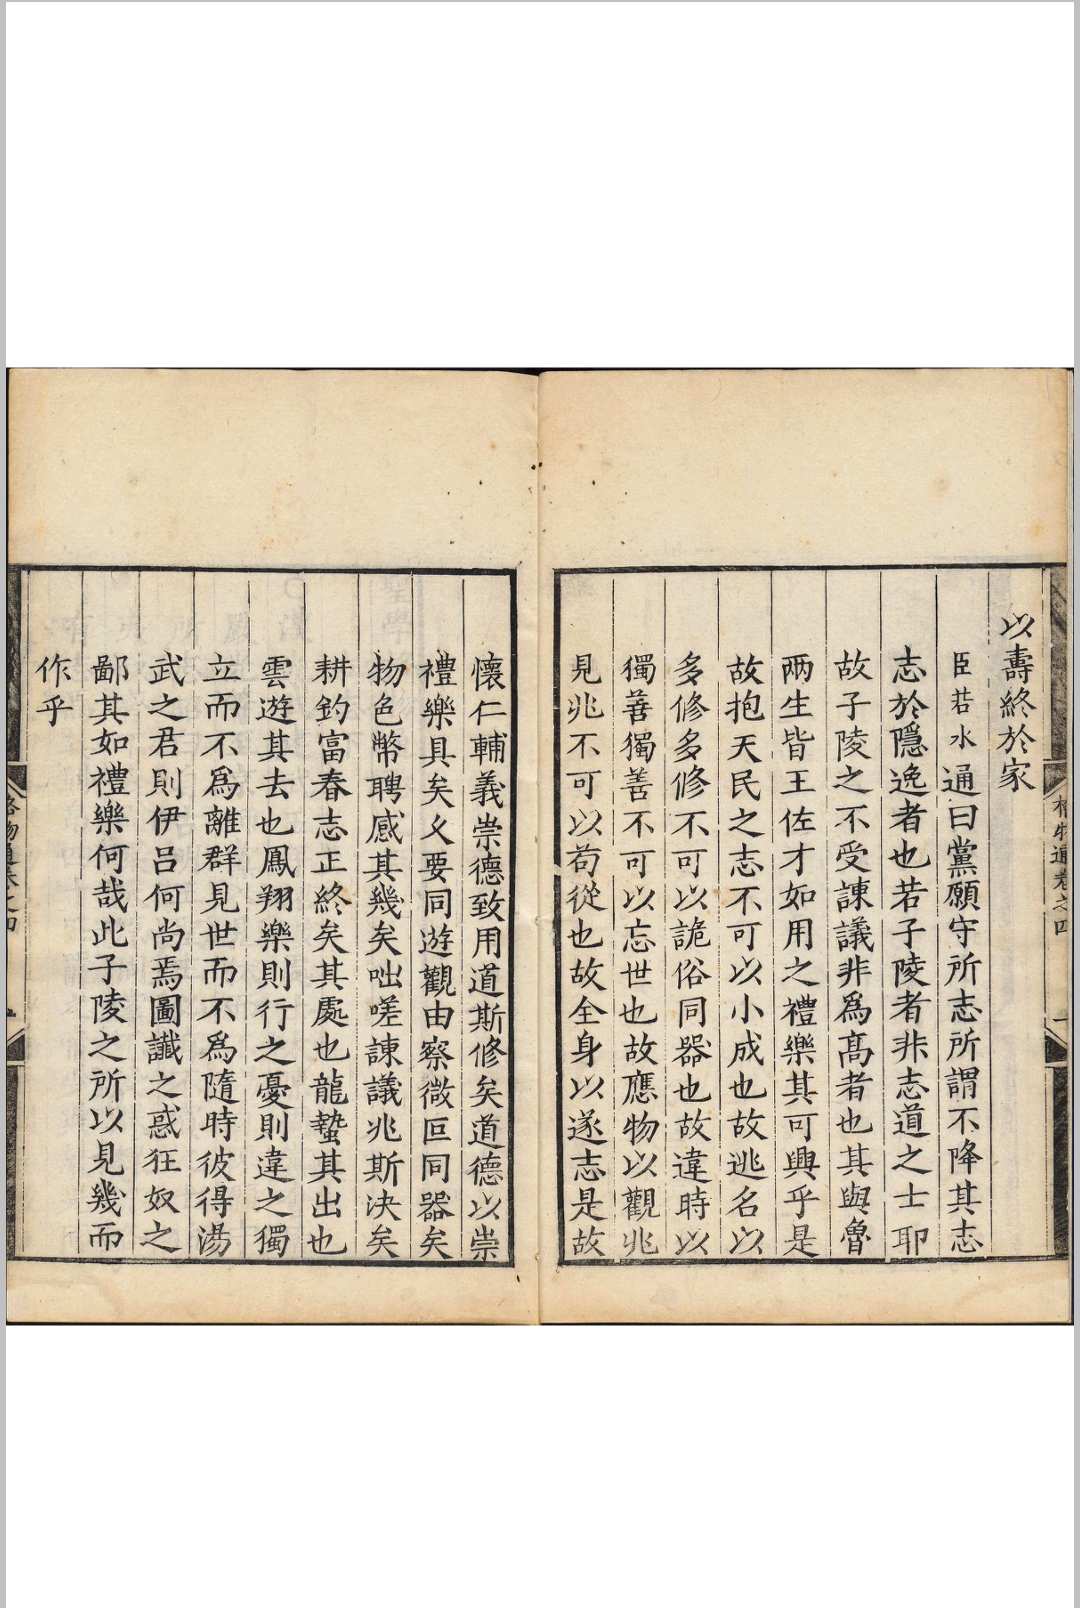 以壽終於家
臣若水通曰黨願守所志所謂不降其志
志於隱逸者也若子陵者非志道之士耶
故子陵之不受諫議非爲髙者也其與魯
兩生皆王佐才如用之禮樂其可興乎是
故抱天民之志不可以小成也故逃名以
多修多修不可以詭俗同器也故違時以
獨善獨善不可以忘世也故應物以觀兆
見兆不可以苟從也故全身以遂志是故
懷仁輔義崇德致用道斯修矣道德以崇
禮樂具矣乆要同遊觀由察微叵同器矣
物色幣聘感其幾矣咄嗟諫議兆斯决矣
耕釣富春志正終矣其處也龍蟄其出也
雲遊其去也鳳翔樂則行之憂則違之獨
立而不爲離群見世而不爲隨時彼得湯
武之君則伊吕何尚焉圖讖之惑狂奴之
鄙其如禮樂何哉此子陵之所以見幾而
作乎
格物通卷之四